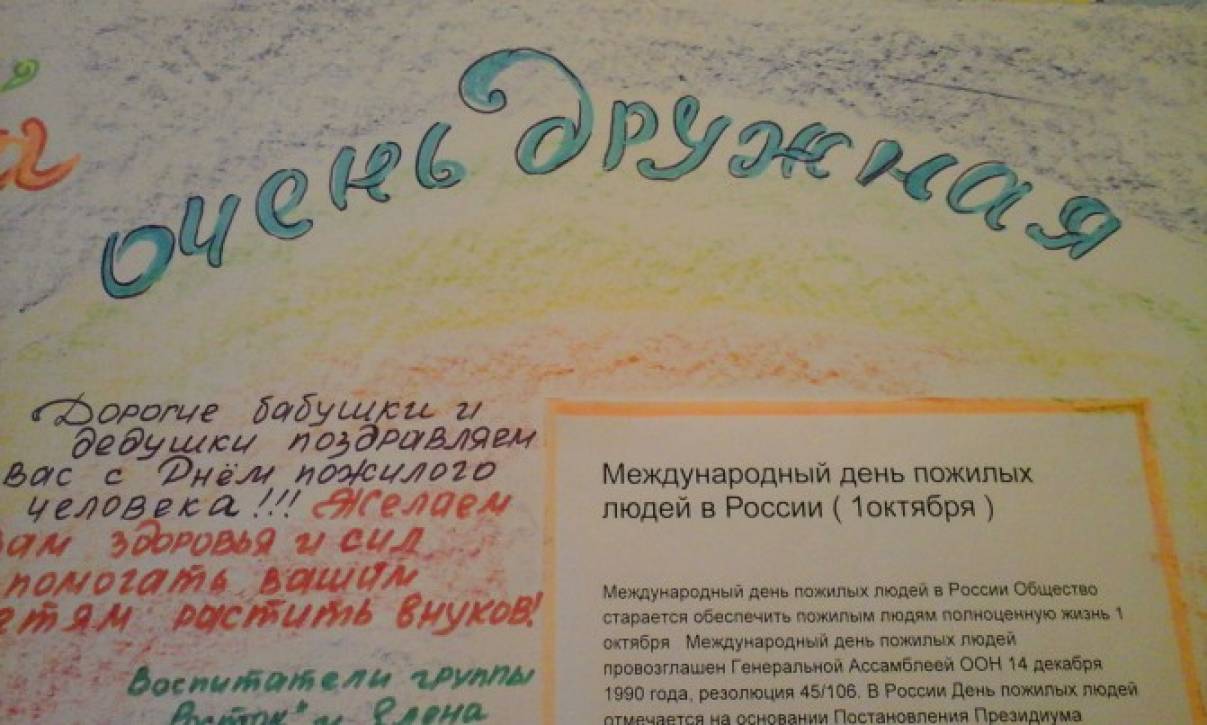 очень дружная
Дорогие бабушки и
дедушки поздравляем
вас с Днём пожилого
человека!!! Желаем
вам здоровья и сил
помогать вашим
детям растить внуков!
Воспитатели группы
"Росток" и Елена
Международный день пожилых
людей в России ( 1октября )
Международный день пожилых людей в России Общество
старается обеспечить пожилым людям полноценную жизнь 1
октября Международный день пожилых людей
провозглашен Генеральной Ассамблеей ООН 14 декабря
1990 года, резолюция 45/106. В России День пожилых людей
отмечается на основании Постановления Президиума